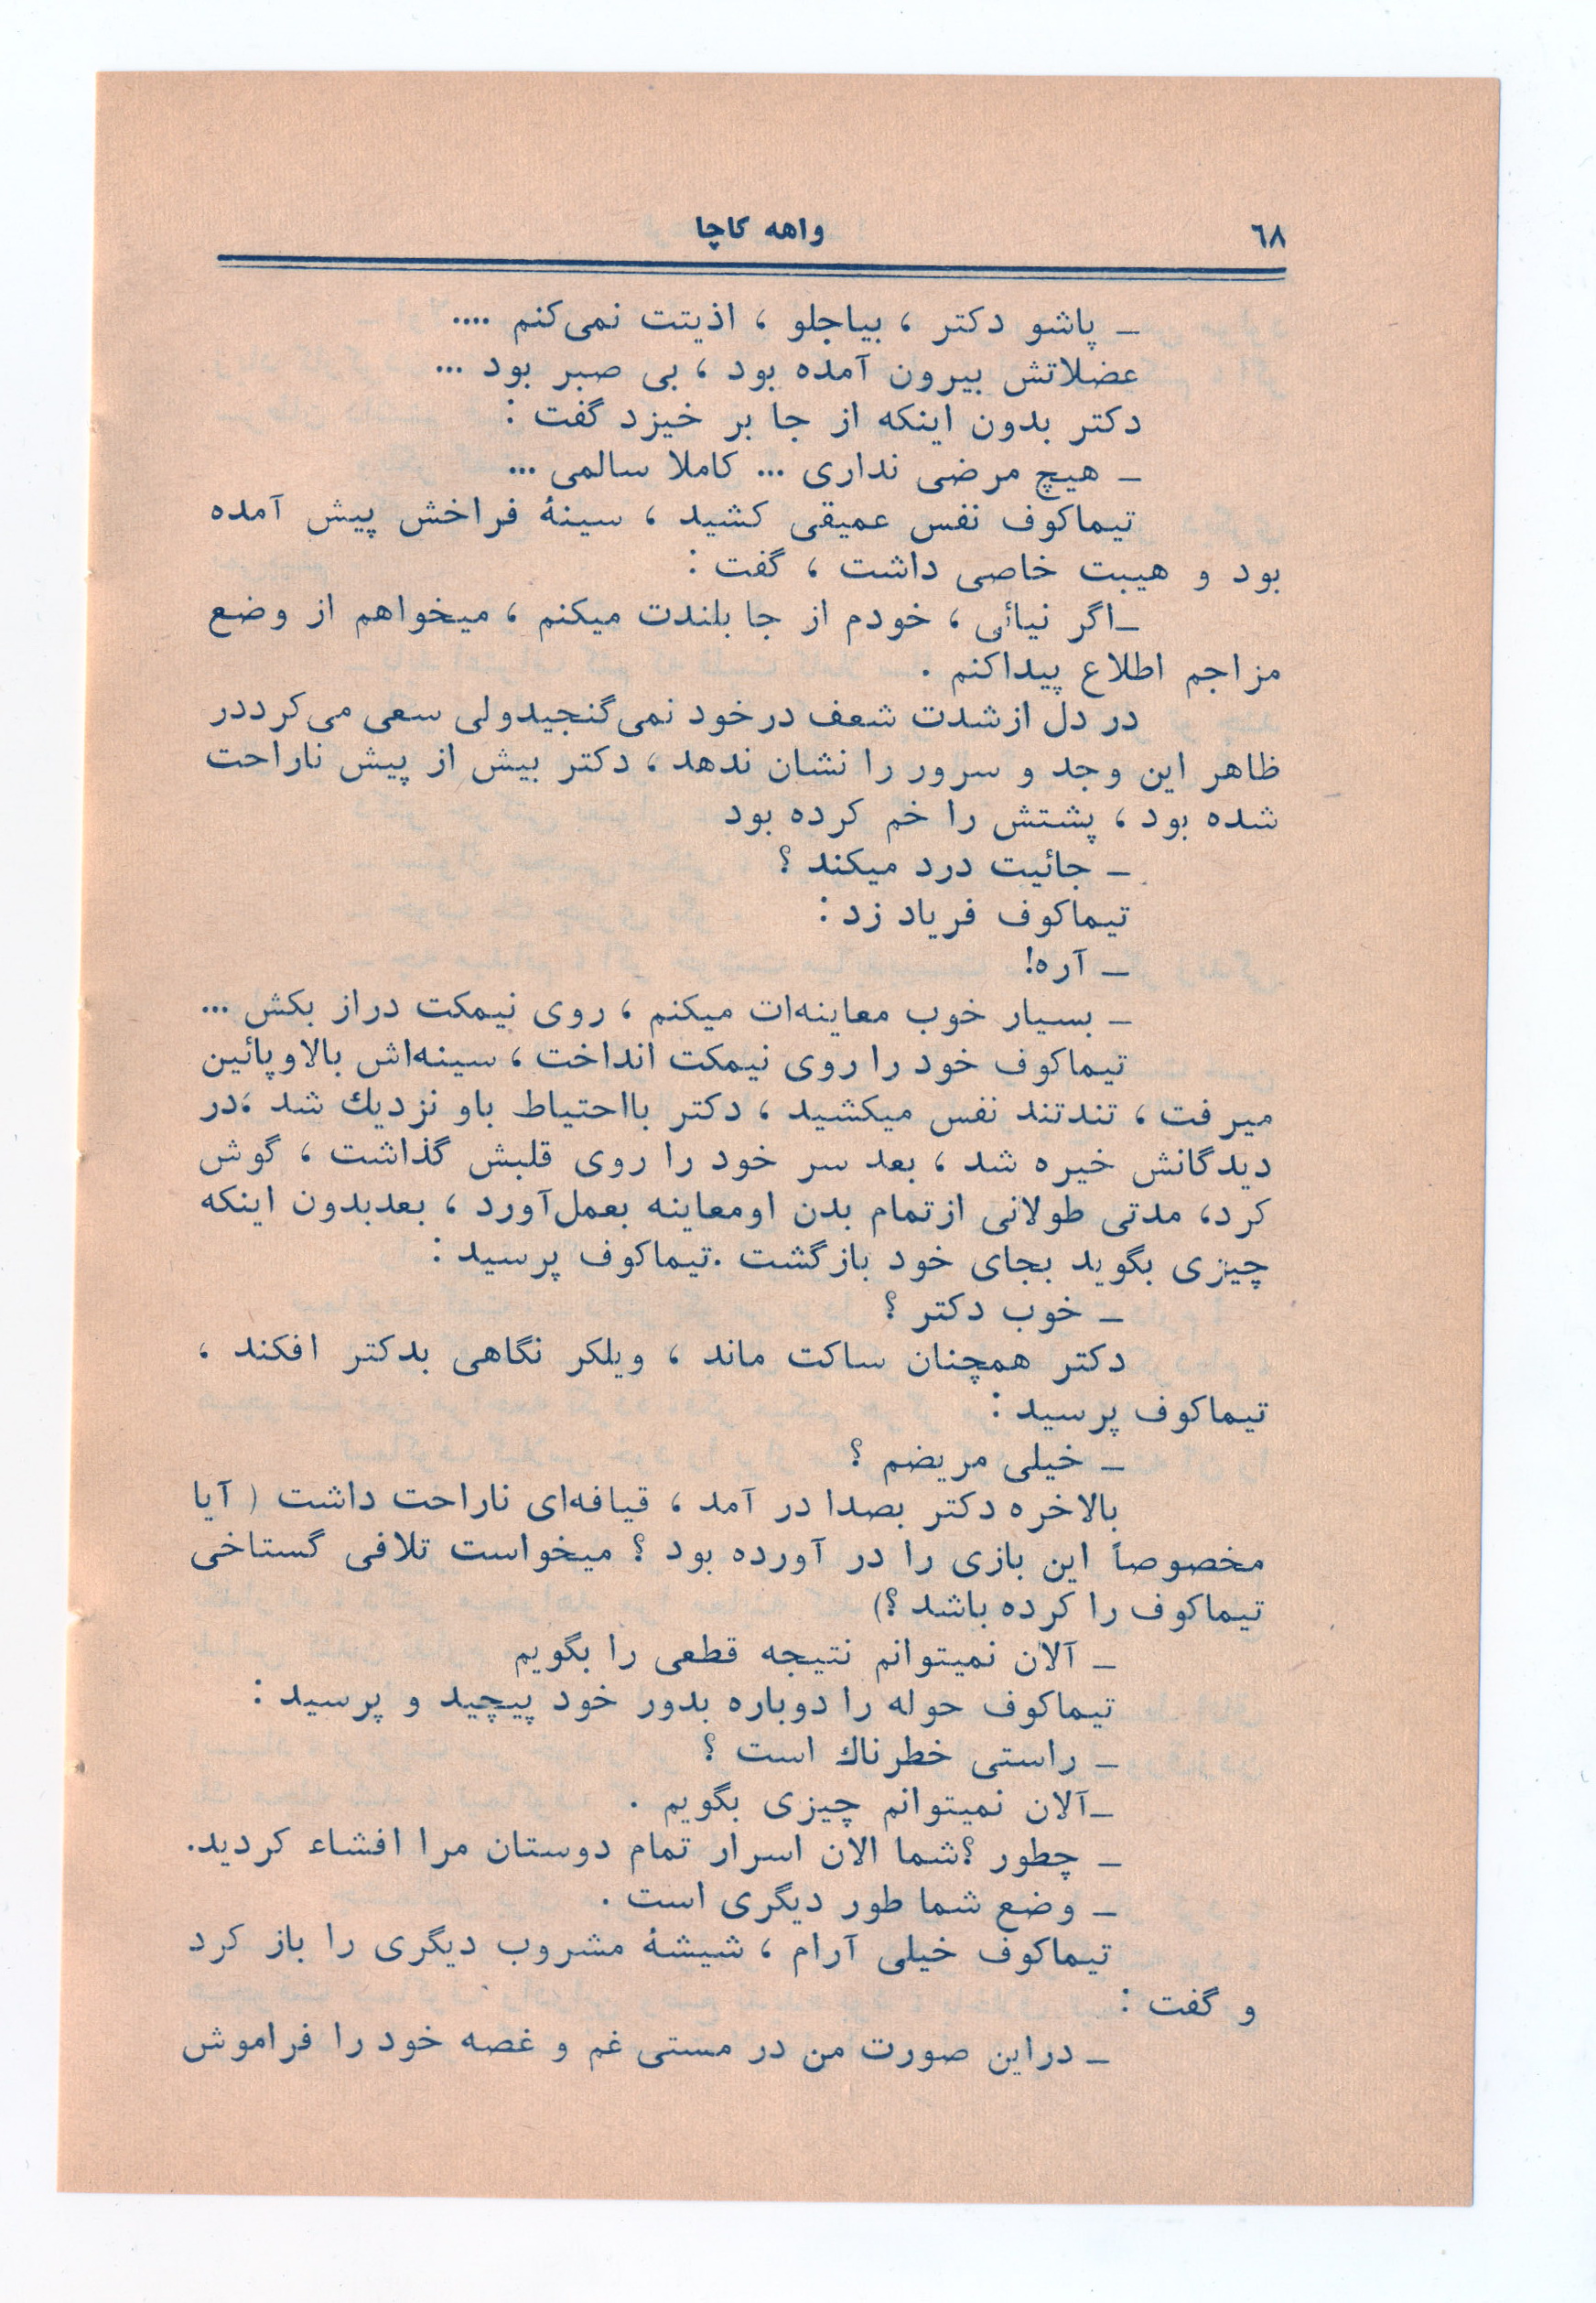 ٦٨
واهه کاچا
ـ پاشو دکتر ، بیاجلو ، اذیتت نمی‌کنم ....
عضلاتش بیرون آمده بود ، بی صبر بود ...
دکتر بدون اینکه از جا بر خیزد گفت :
ـ هیچ مرضی نداری ... کاملا سالمی ...
تیماکوف نفس عمیقی کشید ، سینهٔ فراخش پیش آمده
بود و هیبت خاصی داشت ، گفت :
ـاگر نیائی ، خودم از جا بلندت میکنم ، میخواهم از وضع
مزاجم اطلاع پیداکنم .
در دل ازشدت شعف درخود نمی‌گنجیدولی سعی می‌کرددر
ظاهر این وجد و سرور را نشان ندهد ، دکتر بیش از پیش ناراحت
شده بود ، پشتش را خم کرده بود
ـ جائیت درد میکند ؟
تیماکوف فریاد زد :
ـ آره!
ـ بسیار خوب معاینه‌ات میکنم ، روی نیمکت دراز بکش ...
تیماکوف خود را روی نیمکت انداخت ، سینه‌اش بالاوپائین
میرفت ، تندتند نفس میکشید ، دکتر بااحتیاط باو نزدیك شد ،در
دیدگانش خیره شد ، بعد سر خود را روی قلبش گذاشت ، گوش
کرد، مدتی طولانی ازتمام بدن اومعاینه بعمل‌آورد ، بعدبدون اینکه
چیزی بگوید بجای خود بازگشت .تیماکوف پرسید :
ـ خوب دکتر ؟
دکتر همچنان ساکت ماند ، ویلکر نگاهی بدکتر افکند ،
تیماکوف پرسید :
ـ خیلی مریضم ؟
بالاخره دکتر بصدا در آمد ، قیافه‌ای ناراحت داشت ( آیا
مخصوصاً این بازی را در آورده بود ؟ میخواست تلافی گستاخی
تیماکوف را کرده باشد ؟)
ـ آلان نمیتوانم نتیجه قطعی را بگویم
تیماکوف حوله را دوباره بدور خود پیچید و پرسید :
ـ راستی خطرناك است ؟
ـآلان نمیتوانم چیزی بگویم .
ـ چطور ؟شما الان اسرار تمام دوستان مرا افشاء کردید.
ـ وضع شما طور دیگری است .
تیماکوف خیلی آرام ، شیشهٔ مشروب دیگری را باز کرد
و گفت :
ـ دراین صورت من در مستی غم و غصه خود را فراموش